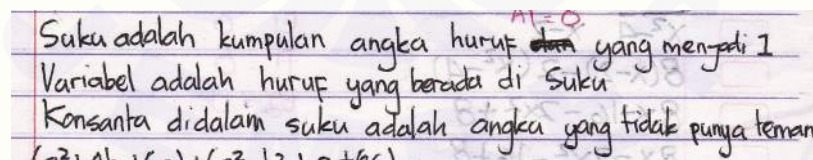 A1 = 0.
Suku adalah kumpulan angka huruf yang menjadi 1
Variabel adalah huruf yang berada di Suku
Konsanta didalam suku adalah angka yang tidak punya teman